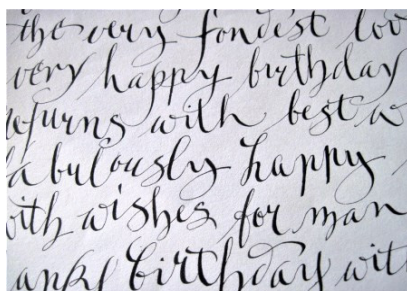 the very fondest lov
very happy birthday
returns with best w
fabulously happy
with wishes for man
birthday wit